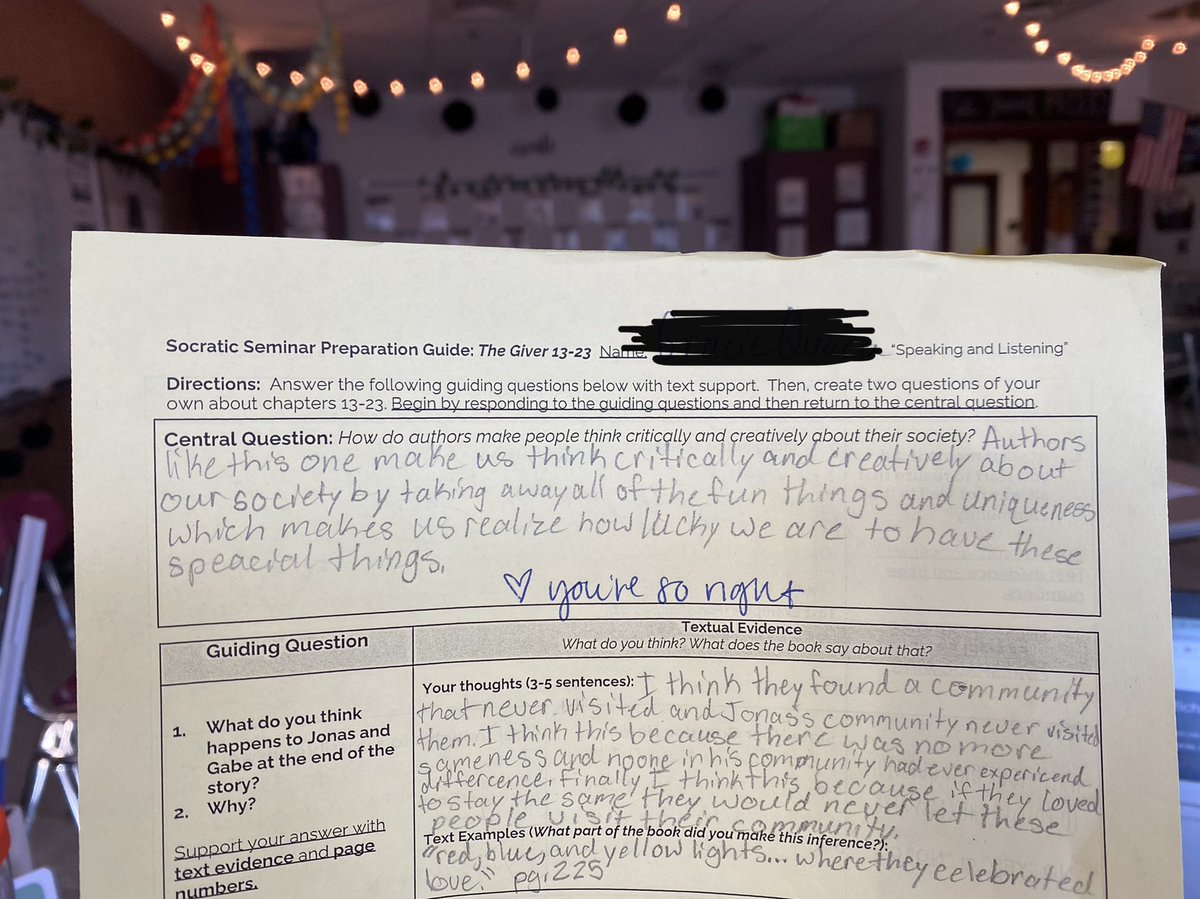 Socratic Seminar Preparation Guide: The Giver 13-23 Name "Speaking and Listening"
Directions: Answer the following guiding questions below with text support. Then, create two questions of your
own about chapters 13-23. Begin by responding to the guiding questions and then return to the central question.
Central Question: How do authors make people think critically and creatively about their society? Authors
like this one make us think critically and creatively about
our society by taking away all of the fun things and uniqueness
which makes us realize how lucky we are to have these
speacial things.
♡ you're so right
Guiding Question
Textual Evidence
What do you think? What does the book say about that?
1. What do you think
happens to Jonas and
Gabe at the end of the
story?
2. Why?
Support your answer with
text evidence and page
numbers.
Your thoughts (3-5 sentences): I think they found a community
that never visited and Jonas's community never visited
them. I think this because there was no more
sameness and noone in his community had ever expericend
differcence. Finally I think this because if they loved
to stay the same they would never let these
people visit their community.
Text Examples (What part of the book did you make this inference?):
"red, blue, and yellow lights... where they celebrated
love." pg. 225